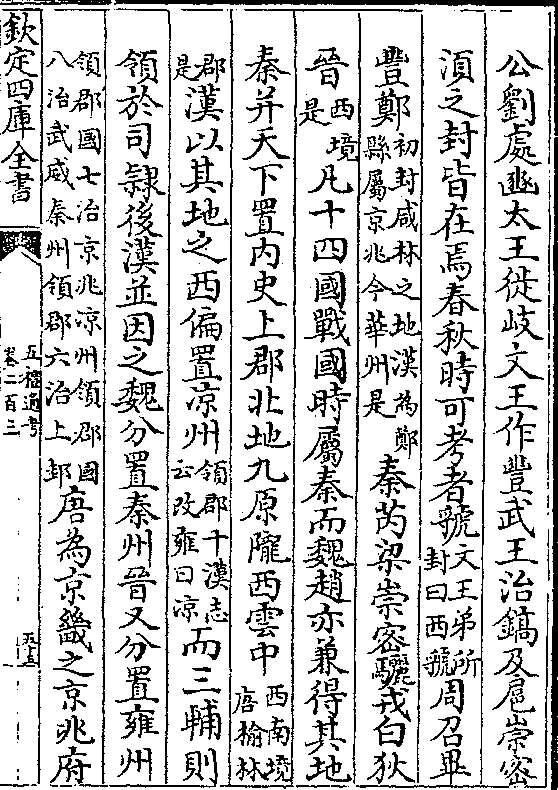 公劉處豳太王徙岐文王作豐武王治鎬及扈崇密
須之封皆在焉春秋時可考者虢文王弟所封曰西虢周召畢
豐鄭初封咸林之地漢為鄭縣屬京兆今華州是秦芮梁崇密驪戎白狄
晉西境是凡十四國戰國時屬秦而魏趙亦兼得其地
秦并天下置内史上郡北地九原隴西雲中西南境唐榆林
郡是漢以其地之西偏置涼州領郡十漢志云改雍曰涼而三輔則
領於司隸後漢並因之魏分置秦州晉又分置雍州
領郡國七治京兆凉州領郡國八治武威秦州領郡六治上邽唐為京畿之京兆府
欽定四庫全書
五禮通考
卷二百三
五十五